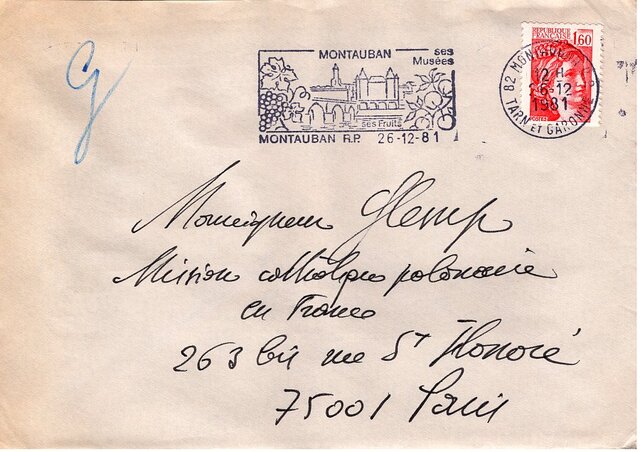 MONTAUBAN ses
Musées
ses Fruits
MONTAUBAN R.P. 26-12-81
REPUBLIQUE
FRANÇAISE
1,60
POSTES
82 MONTAUBAN
12 H
26-12
1981
TARN ET GARONNE
G
Monseigneur Glemp
Mission catholique polonaise
en France
263 bis rue St Honoré
75001 Paris